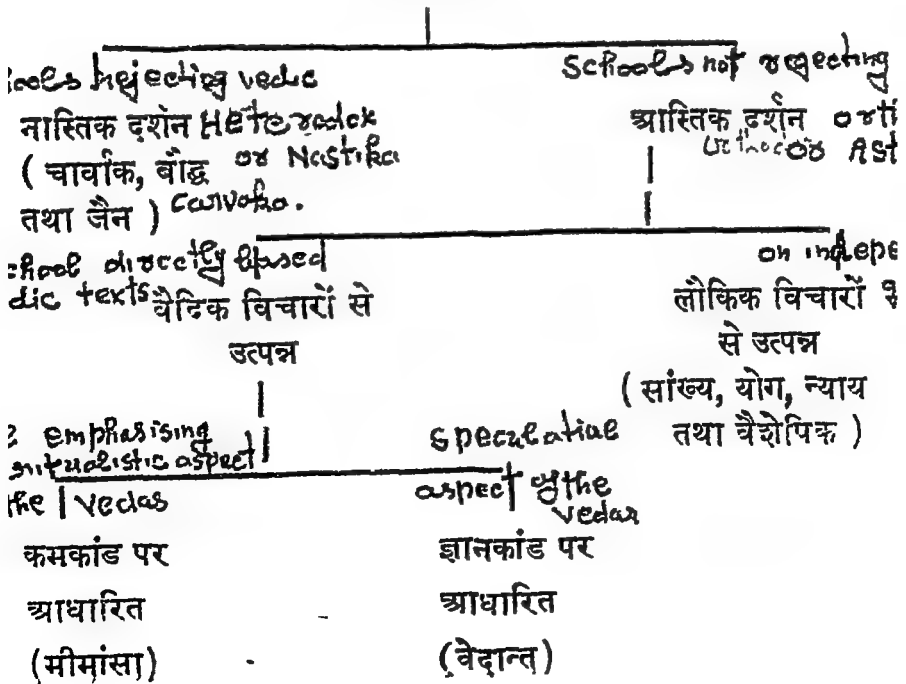 ools rejecting vedic
नास्तिक दर्शन Heterodox
( चार्वाक, बौद्ध or Nastika
तथा जैन ) Carvaka.
Schools not rejecting
आस्तिक दर्शन orti
or Ast
chool directly based
dic texts
वैदिक विचारों से
उत्पन्न
on indepe
लौकिक विचारों
से उत्पन्न
( सांख्य, योग, न्याय
तथा वैशेपिक )
emphasising
ritualistic aspect
the vedas
कमकांड पर
आधारित
(मीमांसा)
speculative
aspect of the
vedas
ज्ञानकांड पर
आधारित
(वेदान्त)